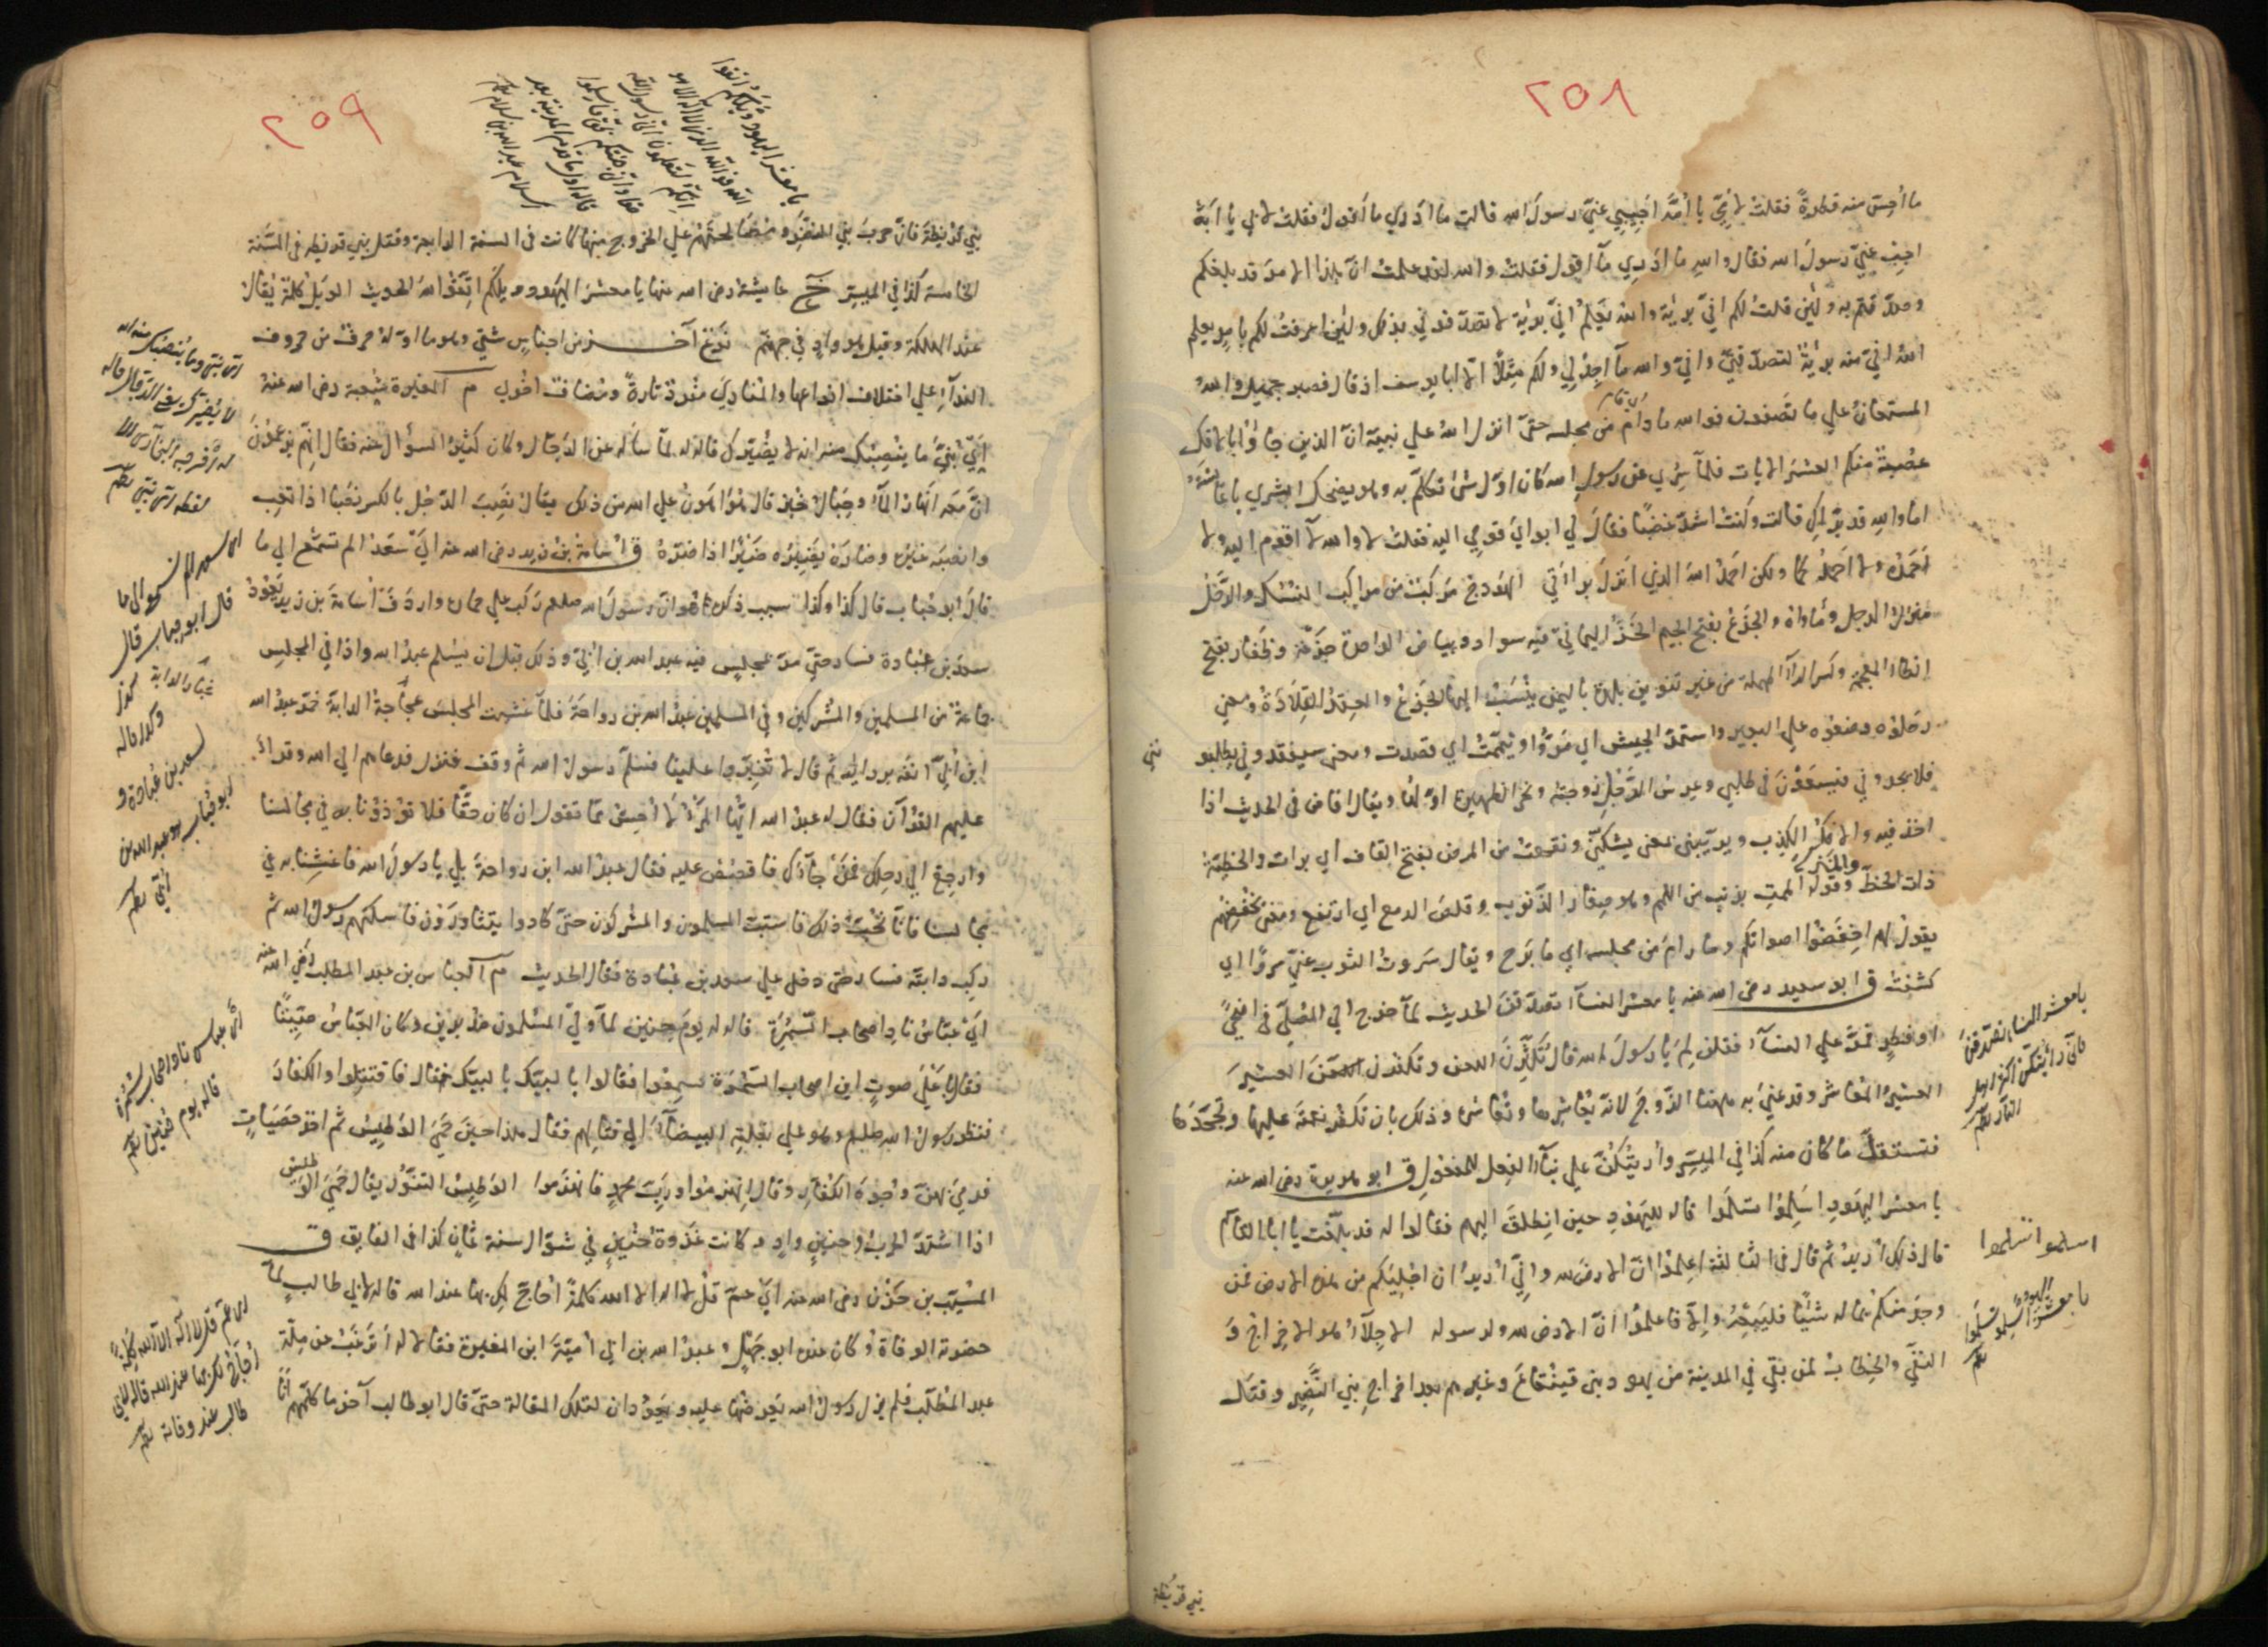 ٢٥٨
ما أحس منه قطرة فقلت لأبي يا أمه أجيبي عني رسول الله قالت ما أدري ما أقول فقلت لأبي يا أبة
اجب عني رسول الله فقال والله ما أدري ما أقول فقلت والله لقد علمت ان هذا الامر قد بلغكم
وصدقتم به ولئن قلت لكم اني بريئة والله يعلم اني بريئة لا تصدقوني بذلك ولئن اعرفت لكم بامر يعلم
الله اني منه بريئة لتصدقني واني والله ما أجد لي ولكم مثلا الا ابا يوسف اذ قال فصبر جميل والله
المستعان علي ما تصفون فوالله ما رام من مجلسه حتي انزل الله علي نبيه ان الذين جاؤا بالافك
عصبة منكم العشر الايات فلما سري عن رسول الله كان اول شئ تكلم به وهو يضحك ابشري يا عائشة
اما والله قد برأك قالت وكنت اشد غضبا فقال لي ابواي قومي اليه فقلت لا والله لا اقوم اليه ولا
أحمده ولا احمدكما ولكن احمد الله الذي انزل براءتي الهودج مركبت من مراكب النساء والرحل
منزل الرجل ومأواه والجزع بفتح الجيم الخرز اليماني فيه سواد وبياض الواحدة جزعة وظفار بفتح
الظاء المعجمة وكسر الراء المهملة من غير تنوين بلدة باليمن ينسب اليها الجزع والعقد القلادة ومعني
رحلوه وضعوه علي البعير واستمر الجيش اي مروا وتيممت اي قصدت ومعني سيفقدوني يطلبو
ني
فلا يجدوني فيسعون في طلبي وعرس الرجل زوجته ونحر الظهيرة اولها ويقال افاض في الحديث اذا
اخذ فيه والافك الكذب ويريبني معني يشككني ونقهت من المرض بفتح القاف اي برات والحظية
ذات الحظ وقوله الممت بذنب من اللمم وهو صغار الذنوب وقلص الدمع اي ارتفع ومعني يخفضهم
يقول لهم اخفضوا اصواتكم وما رام من مجلسه اي ما برح ويقال سروت الثوب عني سروا اي
كشفت ق ابو سعيد رضي الله عنه يا معشر النساء تصدقن الحديث لما خرج الي المصلي في اضحي
او فطر فمر علي النساء فقلن لم يا رسول الله قال تكثرن اللعن وتكفرن العشير
العشير المعاشر وقد عني به ههنا الزوج لانه يعاشرها وتعاشره وذلك بان تكفر نعمته عليها وتجحدها
فتستقل ما كان منه كذا في الميسر وأريتكن علي بناء الفعل للمفعول ق ابو هريرة رضي الله عنه
يا معشر اليهود اسلموا تسلموا قاله لليهود حين انطلق اليهم فقالوا له قد بلغت يا ابا القاسم
قال ذلك أريد ثم قال في الثالثة اعلموا ان الارض لله واني أريد ان اجليكم من هذه الارض فمن
وجد منكم بماله شيئا فليبعه والا فاعلموا ان الارض لله ولرسوله الاجلاء هو الاخراج و
النفي والخطاب لمن بقي في المدينة من يهود بني قينقاع وغيرهم بعد اخراج بني النضير وقتل
بني قريظة
يا معشر النساء تصدقن
فاني رأيتكن اكثر اهل
النار
اسلموا تسلموا
يا معشر اليهود اسلموا تسلموا
٢٥٩
يا معشر اليهود ويلكم اتقوا
الله فوالله الذي لا اله الا هو
انكم لتعلمون اني رسول الله
حقا واني جئتكم بحق فاسلموا
قاله اول ما قدم المدينة بعد
اسلام عبد الله بن سلام
بني قريظة فان حرب بني النضير وبعضا لحثهم علي الخروج منها كانت في السنة الرابعة وقتل بني قريظة في السنة
الخامسة كذا في الميسر خ عائشة رضي الله عنها يا معشر اليهود ويلكم اتقوا الله الحديث الويل كلمة يقال
عند الهلكة وقيل هو واد في جهنم نوع آخر من اجناس شتي وهو ما اوله حرف من حروف
النداء علي اختلاف انواعها والمنادي مفرد تارة ومضاف اخري م المغيرة بن شعبة رضي الله عنه
أي بني ما ينصبك منه انه لا يضيرك قاله له لما سأله عن الدجال وكان كثير السؤال عنه فقال انهم يزعمون
ان معه انهار الماء وجبال خبز قال هو اهون علي الله من ذلك يقال نصب الرجل بالكسر نصبا اذا تعب
وانصبه غيره وضاره يضيره ضيرا اذا ضره ق أسامة بن زيد رضي الله عنه اي سعد الم تسمع الي ما
قال ابو حباب قال كذا وكذا سبب ذلك هو ان رسول الله صلعم ركب علي حمار واردف أسامة بن زيد يعود
سعد بن عبادة فسار حتي مر بمجلس فيه عبد الله بن ابي وذلك قبل ان يسلم عبد الله واذا في المجلس
جماعة من المسلمين والمشركين وفي المسلمين عبد الله بن رواحة فلما غشيت المجلس عجاجة الدابة خمر عبد الله
ابن ابي انفه بردائه ثم قال لا تغبروا علينا فسلم رسول الله ثم وقف فنزل فدعاهم الي الله وقرأ
عليهم القرآن فقال له عبد الله ايها المرء لا احسن مما تقول ان كان حقا فلا تؤذونا به في مجالسنا
وارجع الي رحلك فمن جاءك فاقصص عليه فقال عبد الله ابن رواحة بلي يا رسول الله فاغشنا به في
مجالسنا فانا نحب ذلك فاستب المسلمون والمشركون حتي كادوا يتثاورون فاسكتهم رسول الله ثم
ركب دابته فسار حتي دخل علي سعد بن عبادة فقال الحديث م العباس بن عبد المطلب رضي الله عنه
اي عباس ناد اصحاب السمرة قاله له يوم حنين لما ولي المسلمون مدبرين وكان العباس صيتا
فقال باعلي صوت اين اصحاب السمرة فسمعوا فقالوا يا لبيك يا لبيك فقال فاقتتلوا والكفار
فنظر رسول الله صلعم وهو علي بغلته البيضاء الي قتالهم فقال هذا حين حمي الوطيس ثم اخذ حصيات
فرمي بهن وجوه الكفار وقال انهزموا ورب محمد فانهزموا الوطيس التنور يقال حمي الوطيس
اذا اشتد الحرب وحنين واد وكانت غزوة حنين في شوال سنة ثمان كذا في الفايق ق
المسيب بن حزن رضي الله عنه اي عم قل لا اله الا الله كلمة احاج لك بها عند الله قاله لابي طالب لما
حضرته الوفاة وكان عنده ابو جهل وعبد الله بن ابي امية ابن المغيرة فقالا له أترغب عن ملة
عبد المطلب فلم يزل رسول الله يعرضها عليه ويعودان لتلك المقالة حتي قال ابو طالب آخر ما كلمهم انا
اي بني وما ينصبك منه انه
لا يضيرك يعني الدجال قاله
اي سعد الم تسمع الي ما
قال ابو حباب قال
كذا
وكذا قاله
لسعد بن عبادة و
ابو حباب هو عبد الله بن
أبي
أي عباس ناد اصحاب السمرة
قاله يوم حنين
اي عم قل لا اله الا الله كلمة
احاج لك بها عند الله قاله لابي
طالب عند وفاته